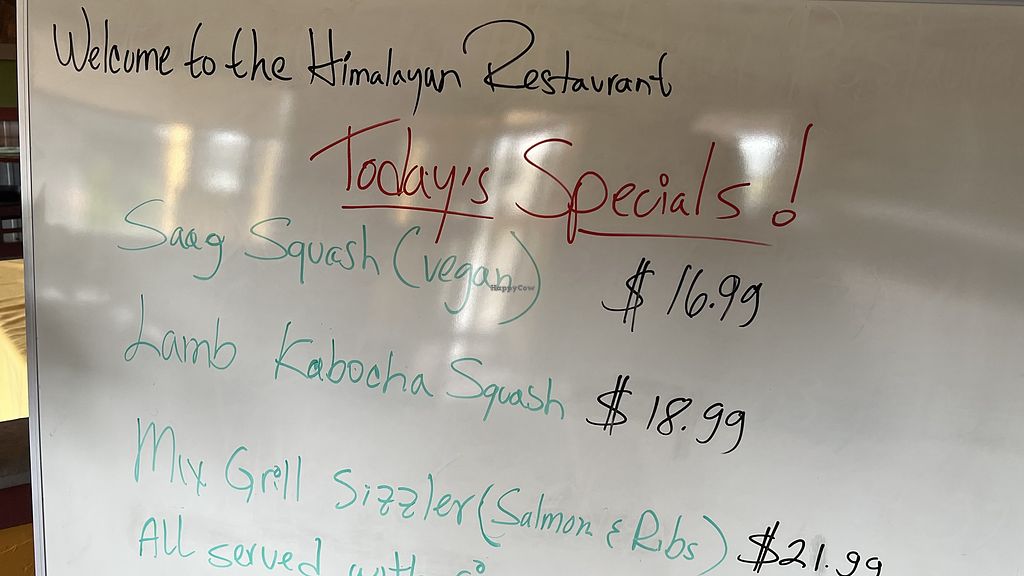 Welcome to the Himalayan Restaurant
Today's Specials!
Saag Squash (vegan) $16.99
HappyCow
Lamb Kabocha Squash $18.99
Mix Grill Sizzler (Salmon & Ribs) $21.99
All served with